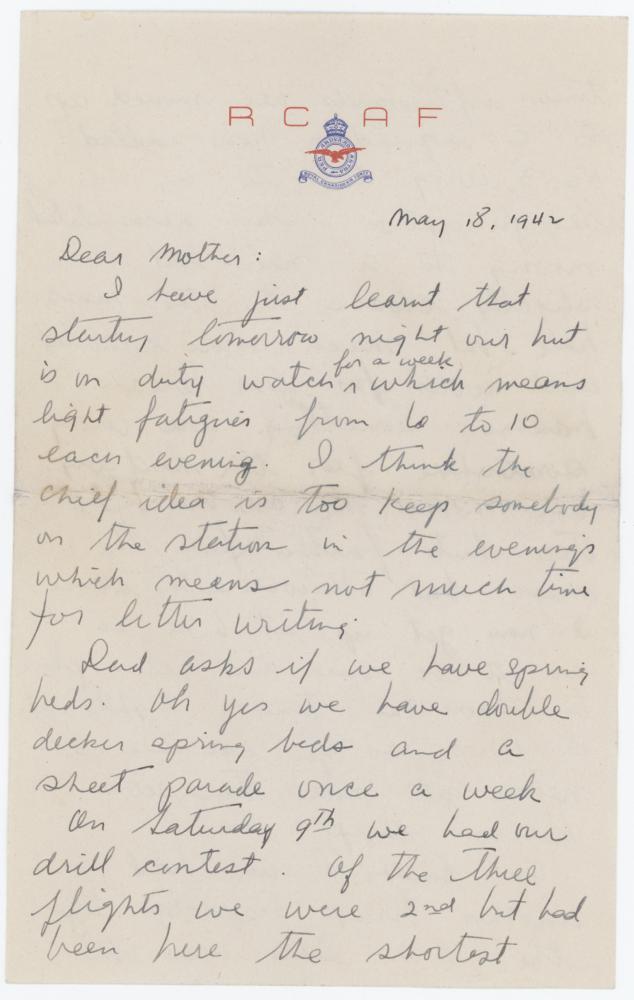 R C A F
PER ARDUA AD ASTRA
ROYAL CANADIAN AIR FORCE
May 18, 1942
Dear Mother:
I have just learnt that
starting tomorrow night our hut
is on duty watch for a week which means
light fatigues from 6 to 10
each evening. I think the
chief idea is too keep somebody
on the station in the evenings
which means not much time
for letter writing.
Dad asks if we have spring
beds. Oh yes we have double
decker spring beds and a
sheet parade once a week
On Saturday 9th we had our
drill contest. Of the three
flights we were 2nd but had
been here the shortest